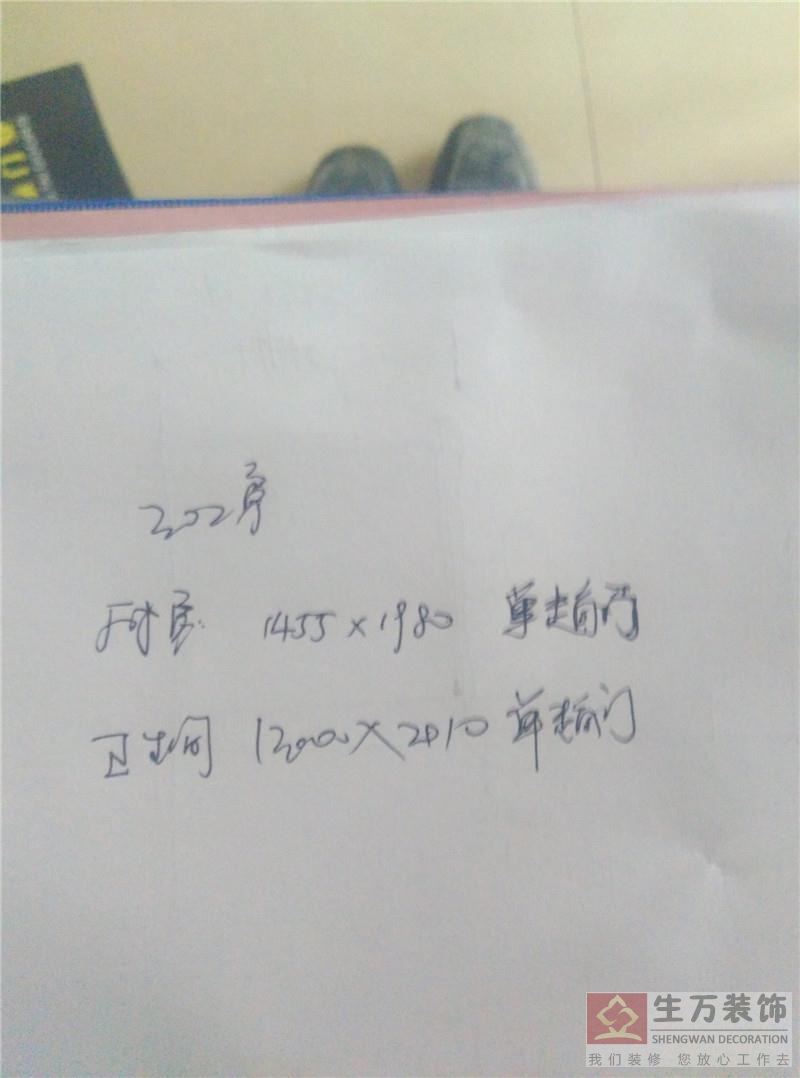 202房
厨房 1455×1980 单趟门
卫生间 1200×2010 单趟门
生万装饰
SHENGWAN DECORATION
我们装修 您放心工作去